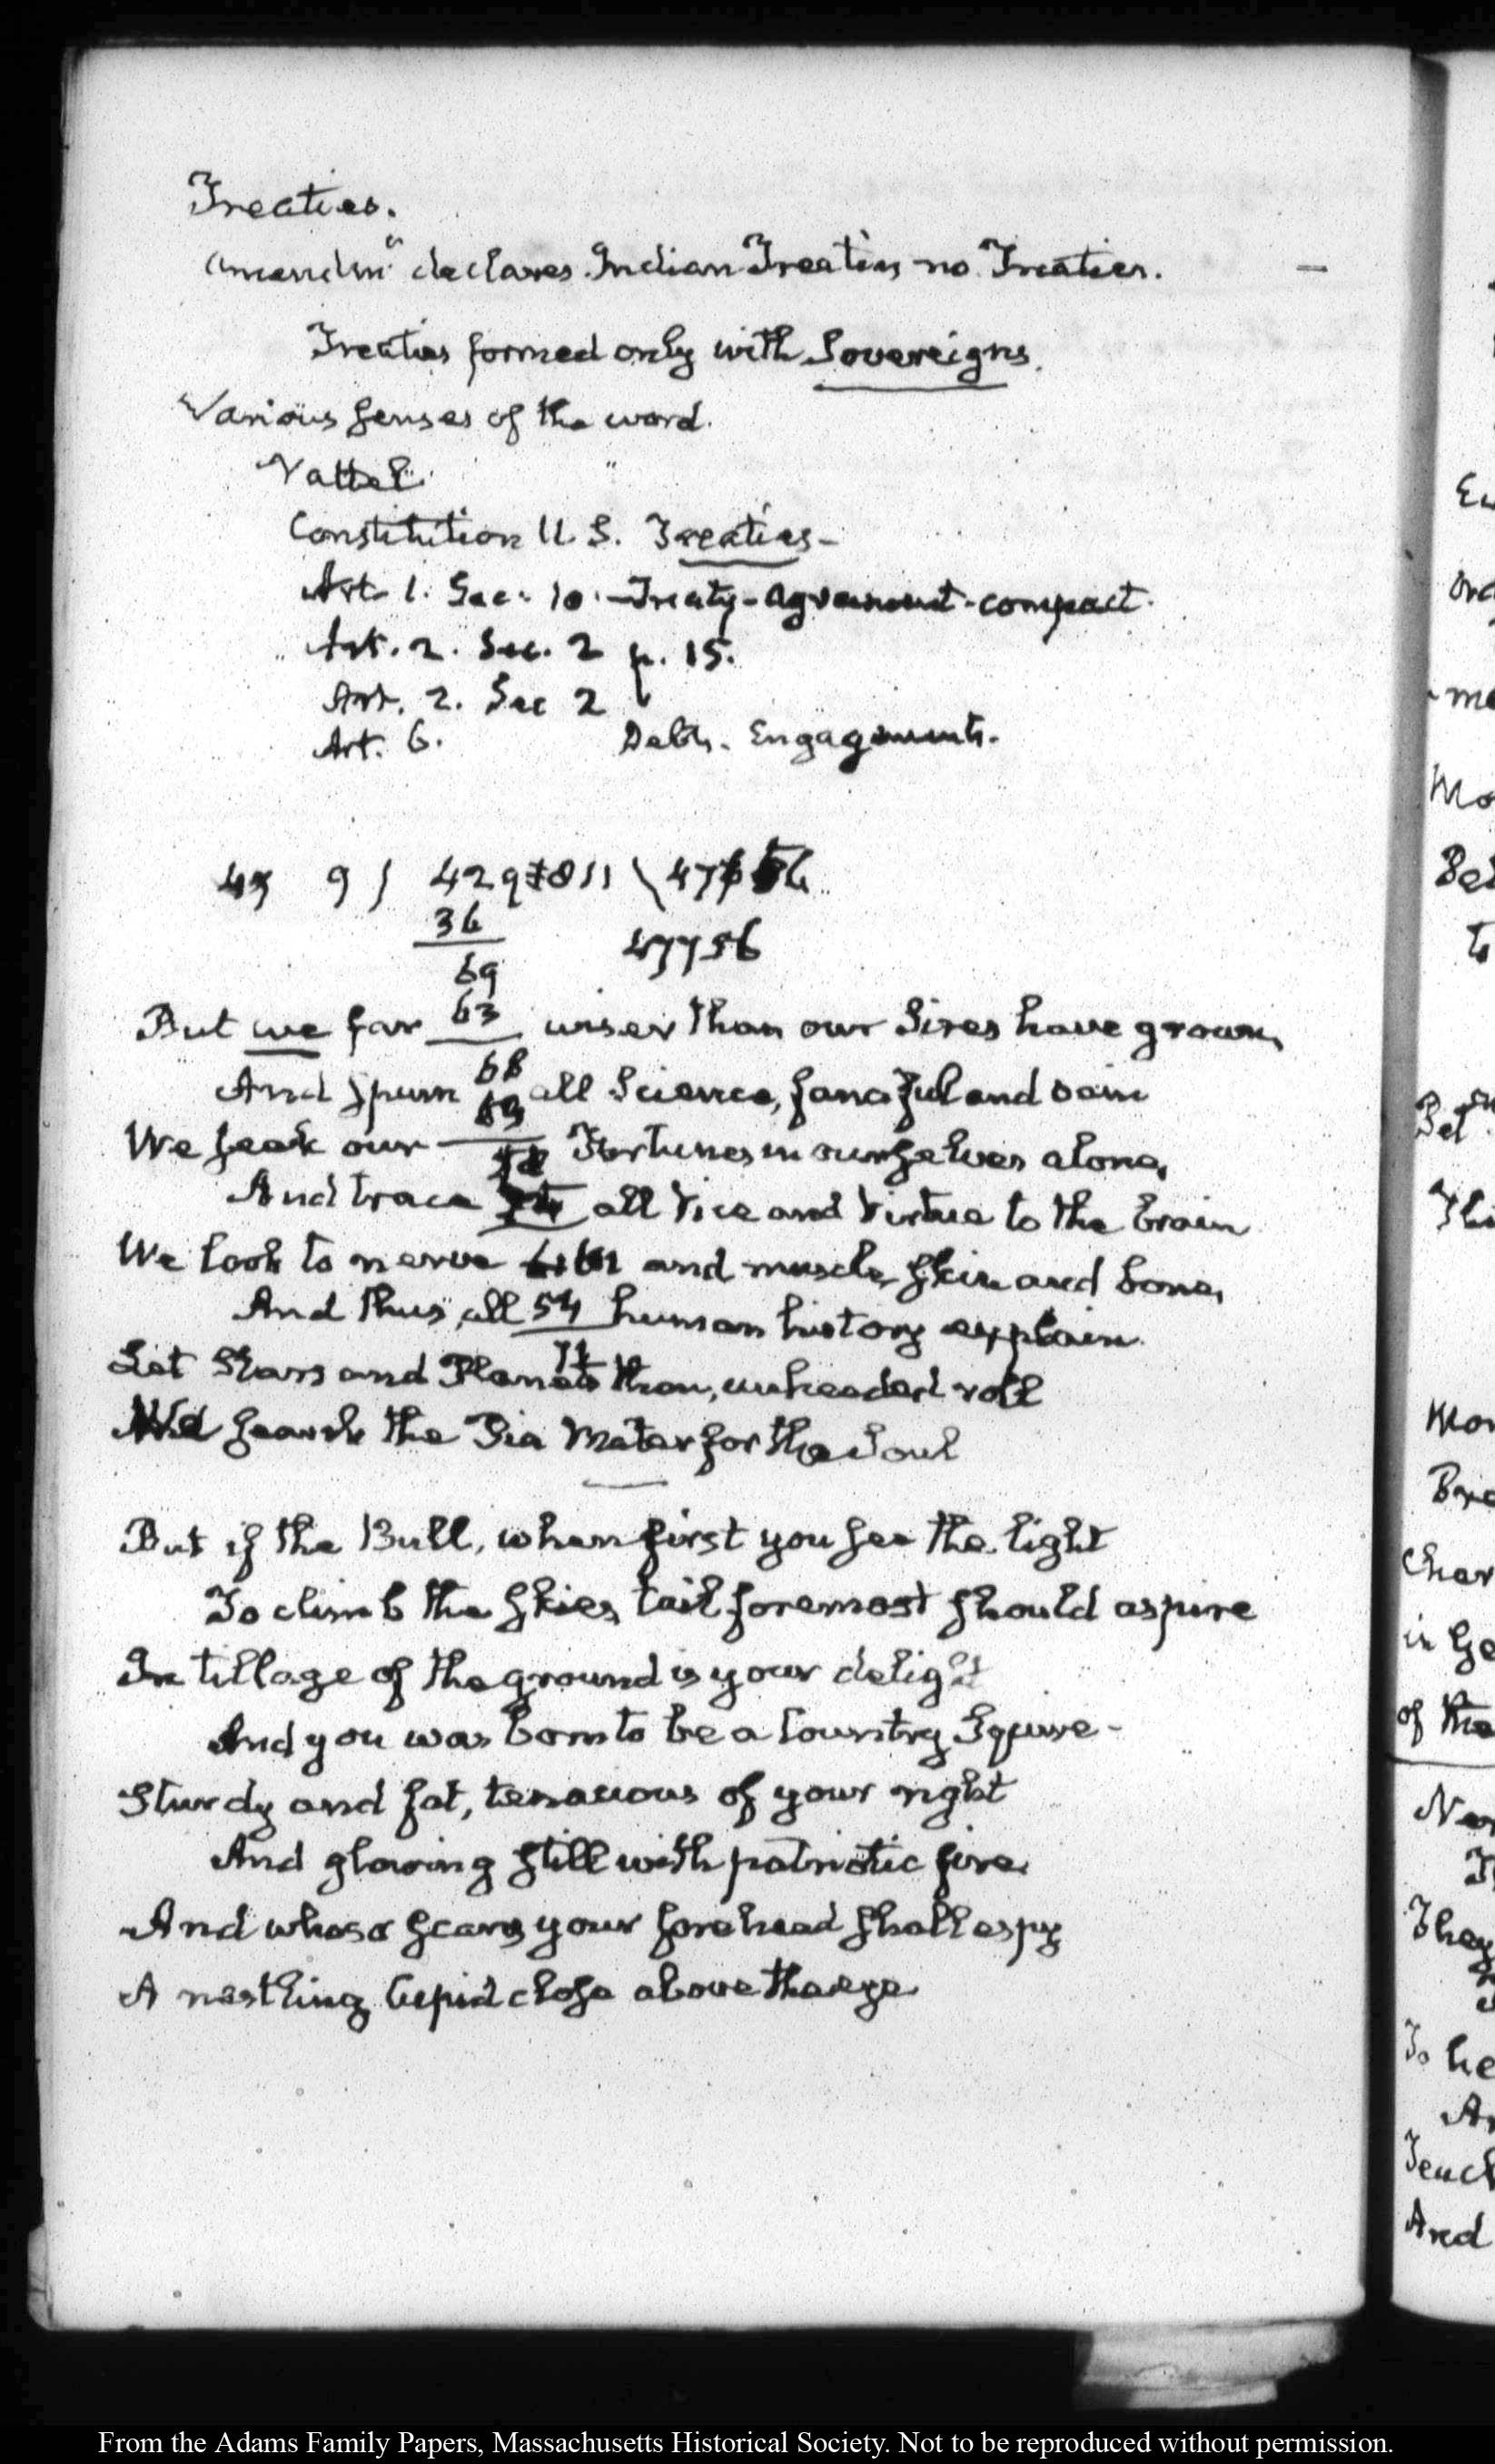 Treaties.
Amendmt declares Indian Treaties no Treaties. —
Treaties formed only with Sovereigns.
Various senses of the word.
Vattel
Constitution U. S. Treaties—
Art. 1. Sec. 10. — Treaty - agreement - compact.
Art. 2. Sec. 2 p. 15.
Art. 2. Sec 2
Art. 6. Debts. Engagements.
9) 4297811 \
36 47756
69
But we far 63 wiser than our Sires have grown,
68
And spurn all Science, fanciful and vain
63
We seek our Fortunes in ourselves alone,
And trace all Vice and Virtue to the brain
We look to nerve and muscle, skin and bone,
And thus, all 54 human history explain.
Let Stars and Planets then, unheeded roll
We search the Pia Mater for the Soul
But if the Bull, when first you see the light
To climb the skies, tail foremost should aspire
In tillage of the ground is your delight
And you was born to be a Country Squire—
Sturdy and fat, tenacious of your right
And glowing still with patriotic fire.
And whoso scans your forehead shall espy
A nestling Cupid close above the eye
From the Adams Family Papers, Massachusetts Historical Society. Not to be reproduced without permission.